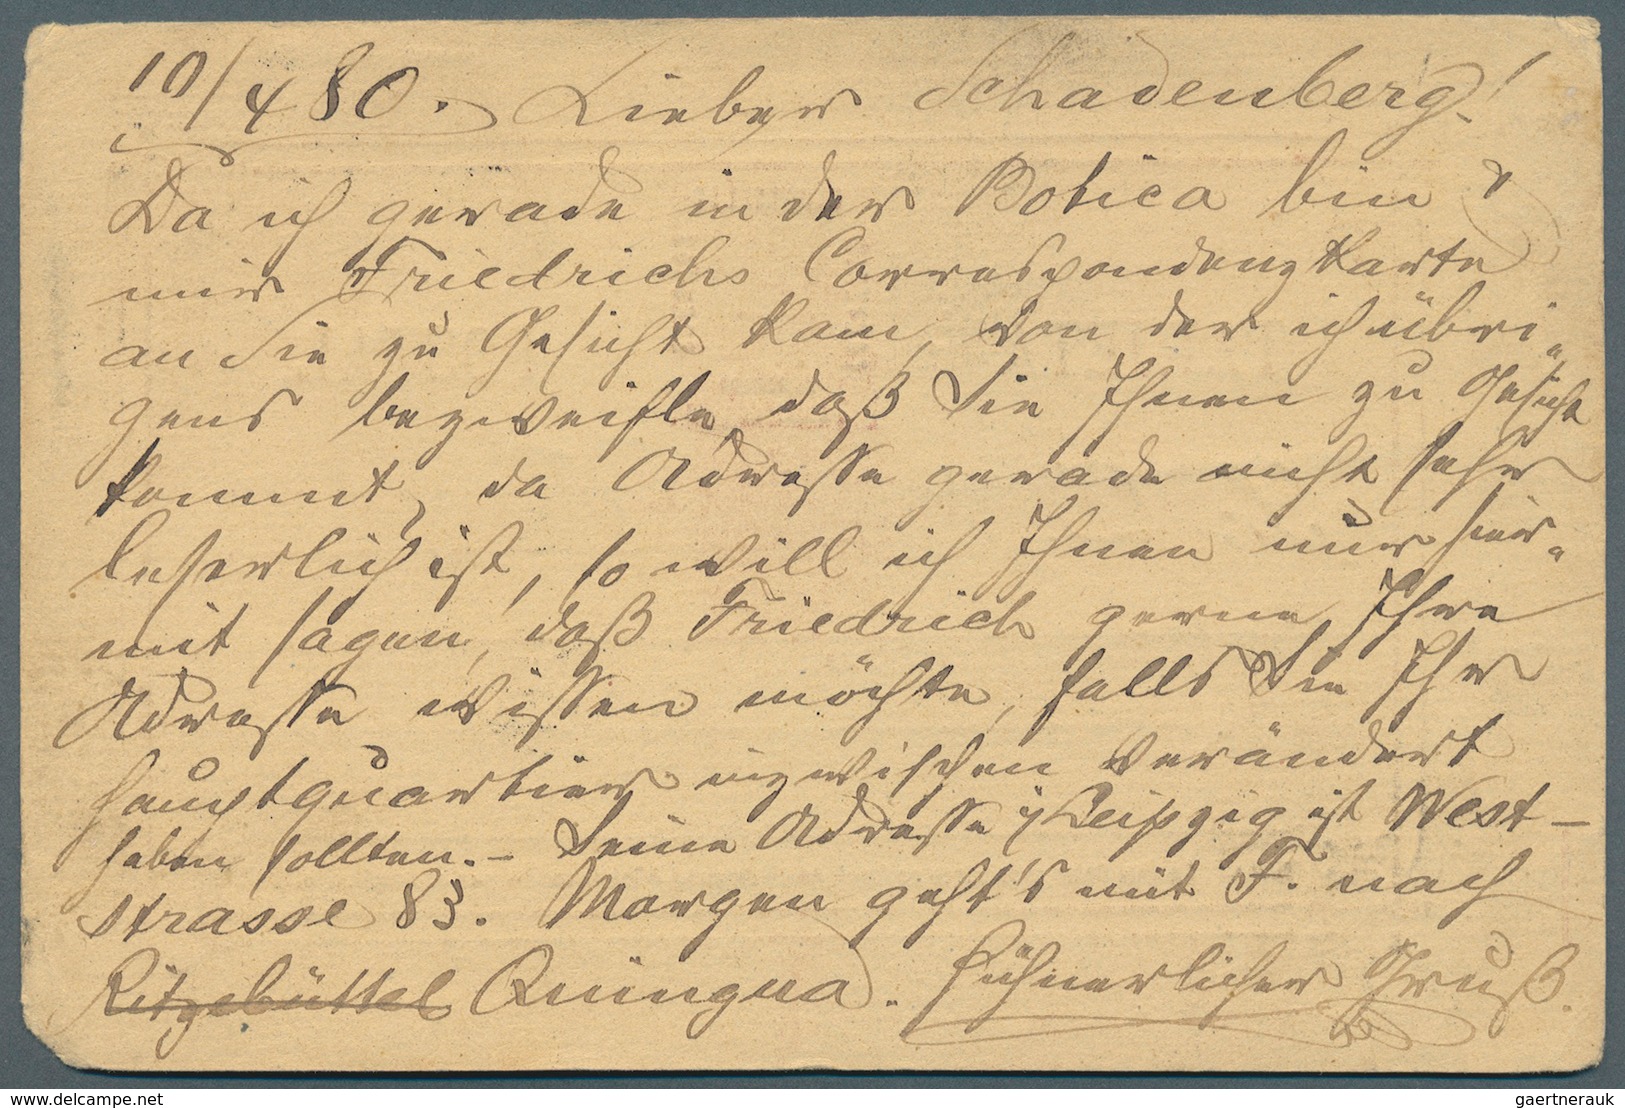 10/4 80. Lieber Schadenberg!
Da ich gerade in der Botica bin &
mir Friedrichs Correspondenzkarte
an Sie zu Gesicht kam, von der ich übri-
gens bezweifle, daß Sie Ihnen zu Gesicht
kommt, da Adresse gerade nicht sehr
leserlich ist, so will ich Ihnen nur hier-
mit sagen, daß Friedrich gerne Ihre
Adresse wissen möchte, falls Sie Ihr
Hauptquartier inzwischen verändert
haben sollten. – Seine Adresse i/Leipzig ist West-
strasse 83. Morgen geht's mit F. nach
Ritzebüttel Quingua. Hühnerlicher Gruß.
www.delcampe.net
gaertnerauk